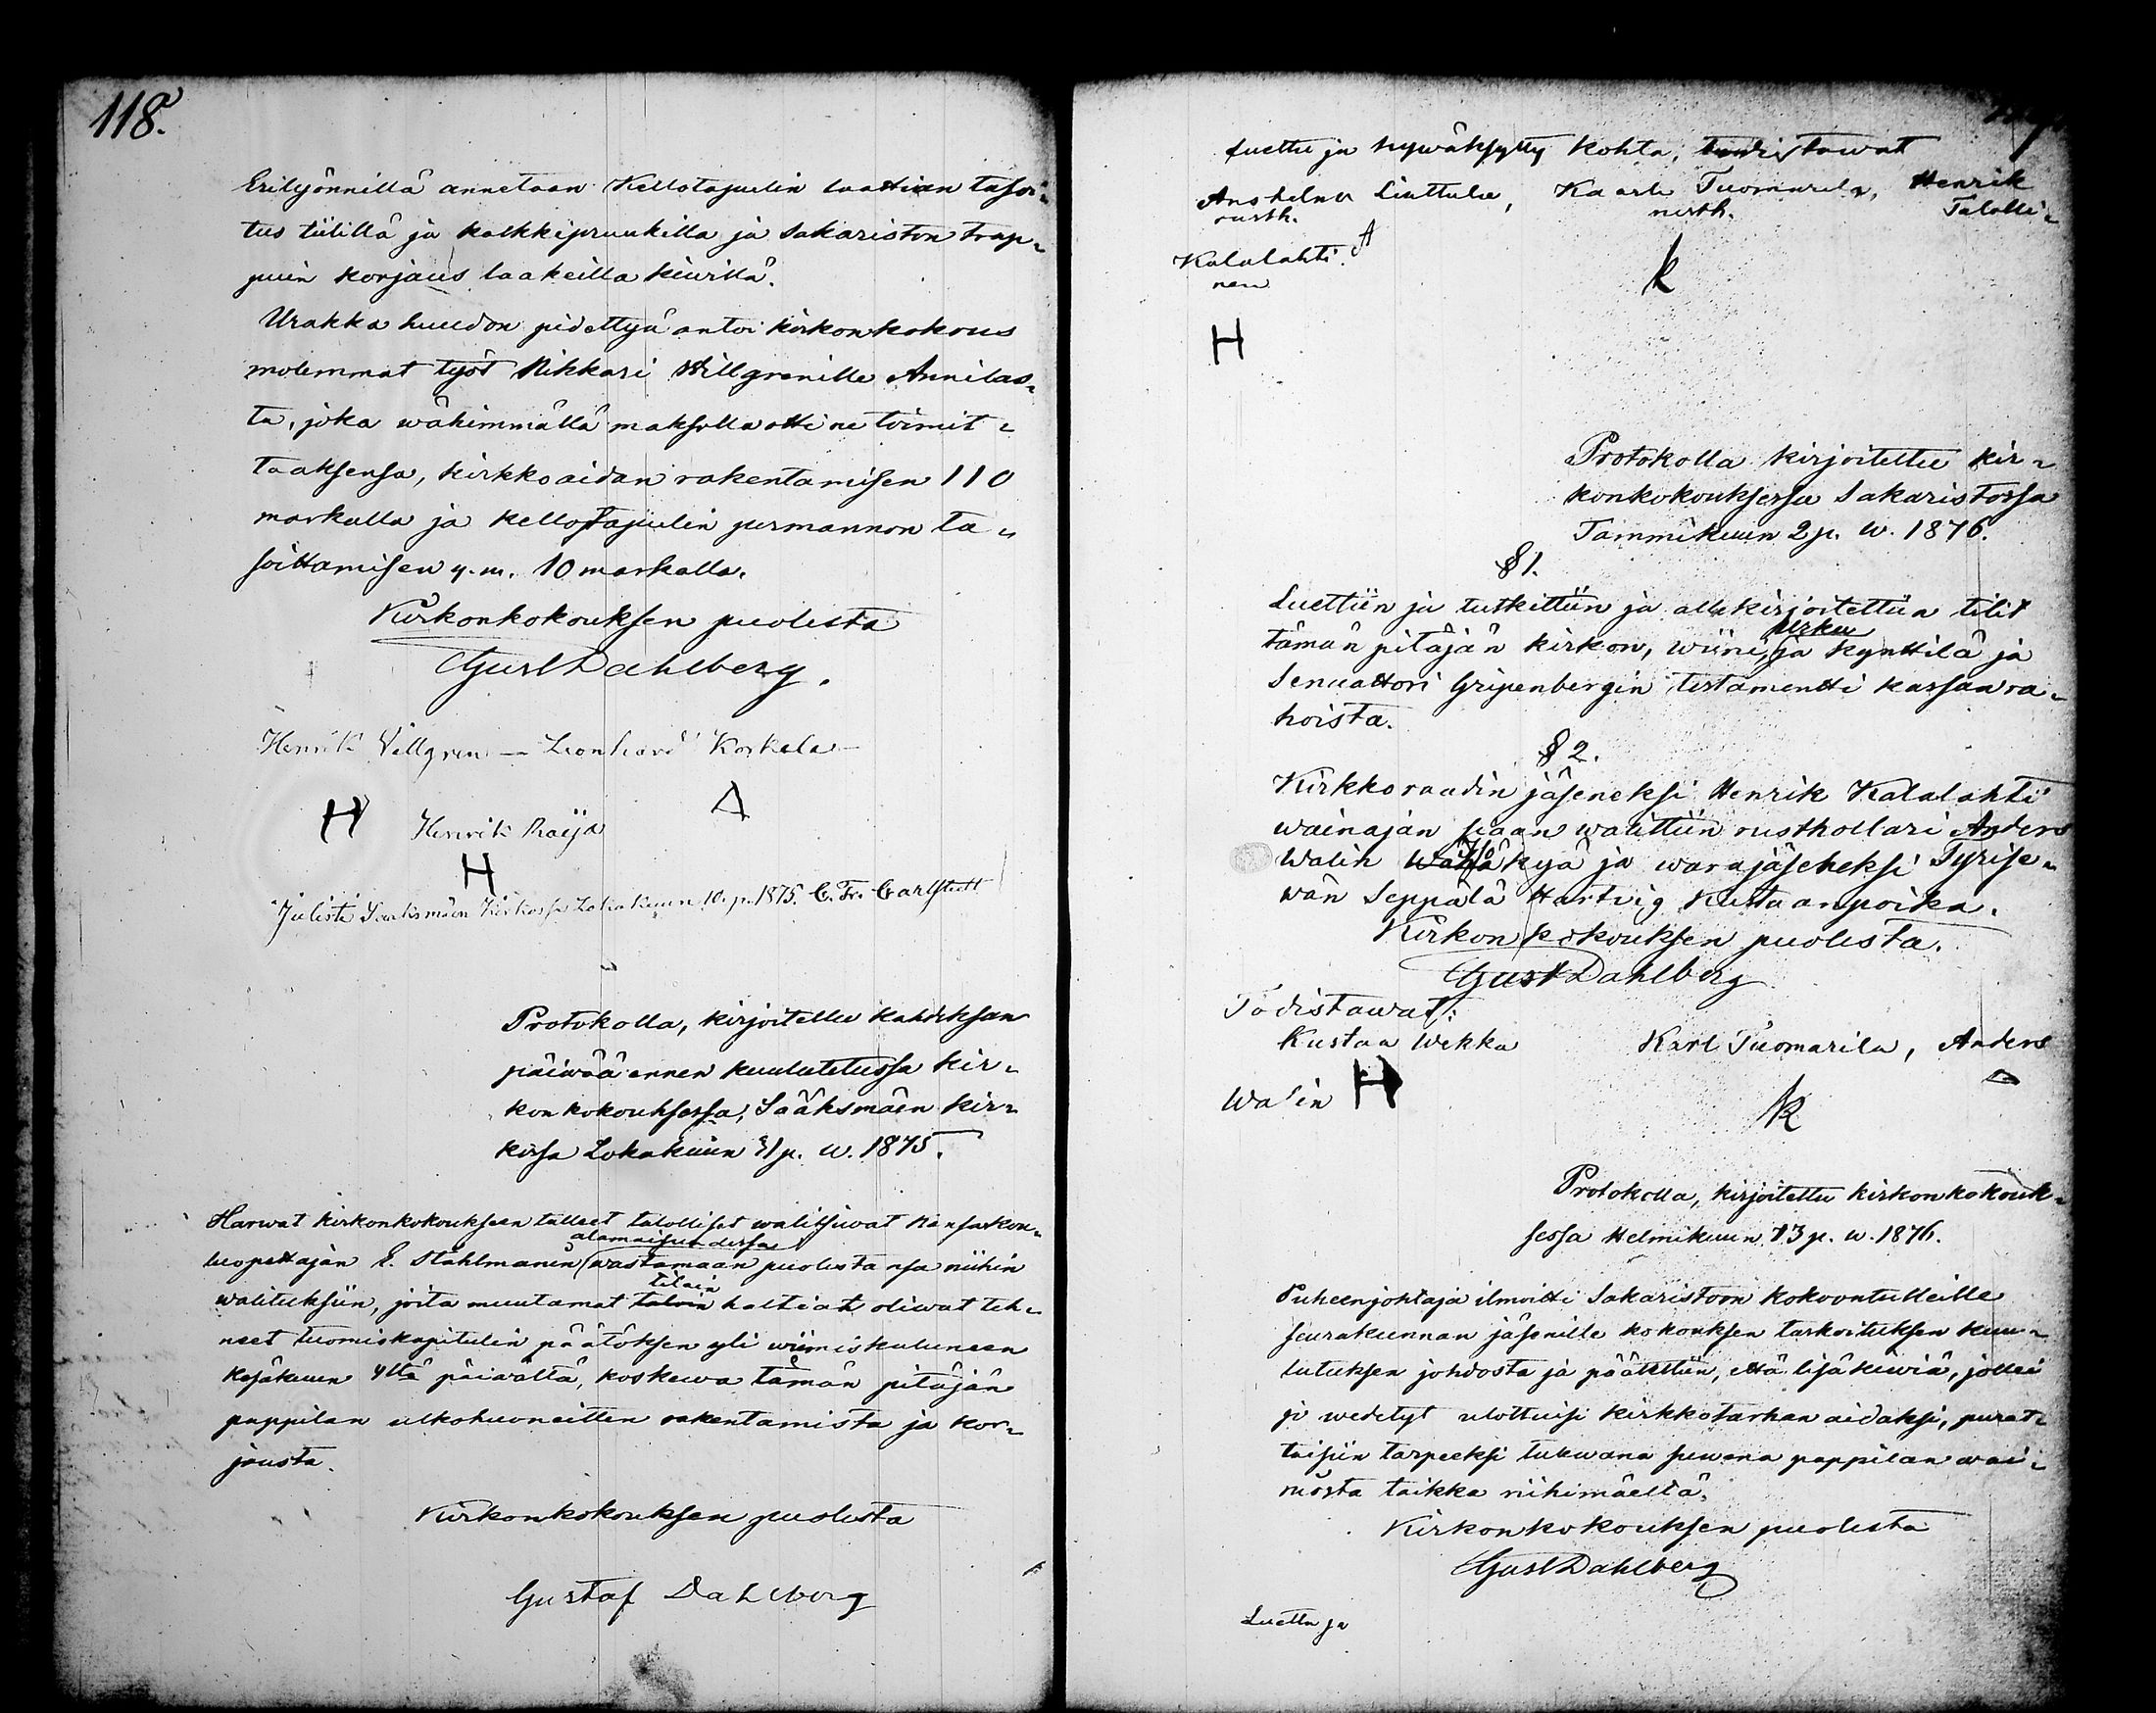 118.
Erityönnillä annetaan Kellotapulin laattian tasoi-
tus tiilillä ja kalkkipruukilla ja sakariston trap-
puin korjaus laakeilla kiwillä.
Urakka huudon pidettyä antoi kirkonkokous
molemmat työt Nikkari Willgrenille Annilas-
ta, joka wähimmällä maksolla otti ne toimit-
taaksensa, kirkkoaidan rakentamisen 110
markalla ja kellotapulin permannon ta-
soittamisen y.m. 10 markalla.
Kirkonkokouksen puolesta
Gust Dahlberg.
Henrik Villgren — Leonhard Korkala
H Henrik Raija Δ
H
Julisti Sääksmäen Kirkossa Lokakuun 10. p. 1875. C. Fr. Carlstedt
Protokolla, kirjoitettu kahdeksan
päiwää ennen kuulutetussa kir-
konkokouksessa, Sääksmäen kir-
kossa Lokakuun 31 p. w. 1875.
Harwat kirkonkokoukseen tulleet talolliset walitsiwat kansakou-
luopettajan E. Ståhlmanin wastamaan puolestansa niihin
alamaisuudessa
walituksiin, joita muutamat taloin haltiat oliwat teh-
tilain
neet tuomiokapitulin päätöksen yli wiimiskuluneen
Kesäkuun 4ltä päiwältä, koskewa tämän pitäjän
pappilan ulkohuoneitten rakentamista ja kor-
jausta.
Kirkonkokouksen puolesta
Gustaf Dahlberg
Luettu ja hywäksytty kohta, todistawat
Anshelm Liuttula, Kaarle Tuomarila, Henrik
rusth. rusth. Talolli-
Kalalahti. A
nen
K
H
Protokolla kirjoitettu kir-
konkokouksessa Sakaristossa
Tammikuun 2 p. w. 1876.
§ 1.
Luettiin ja tutkittiin ja allekirjoitettiin tilit
Urku
tämän pitäjän kirkon, wiini, ja kynttilä ja
Senaattori Gripenbergin testamentti kassan ra-
hoista.
§ 2.
Kirkkoraadin jäseneksi Henrik Kalalahti
wainajan siaan walittiin rusthollari Anders
Walin kyä ja warajäseneksi Tyrise-
wän Seppälä Hartvig Kustaanpoika.
Kirkonkokouksen puolesta.
Gust Dahlberg
Todistawat:
Kustaa Wekka Karl Tuomarila, Anders
Walin H K Δ
Protokolla, kirjoitettu kirkonkokouk-
sessa Helmikuun 13 p. w. 1876.
Puheenjohtaja ilmoitti Sakaristoon kokoontulleille
seurakunnan jäsenille kokouksen tarkoituksen kuu-
lutuksen johdosta ja päätettiin, että lisäkiwiä, jollei
jo wedetyt ulottuisi kirkkotarhan aidaksi, purat-
taisiin tarpeeksi tulewana suwena pappilan
taikka riihimäeltä.
Kirkonkokouksen puolesta
Gust Dahlberg
Luettu ja